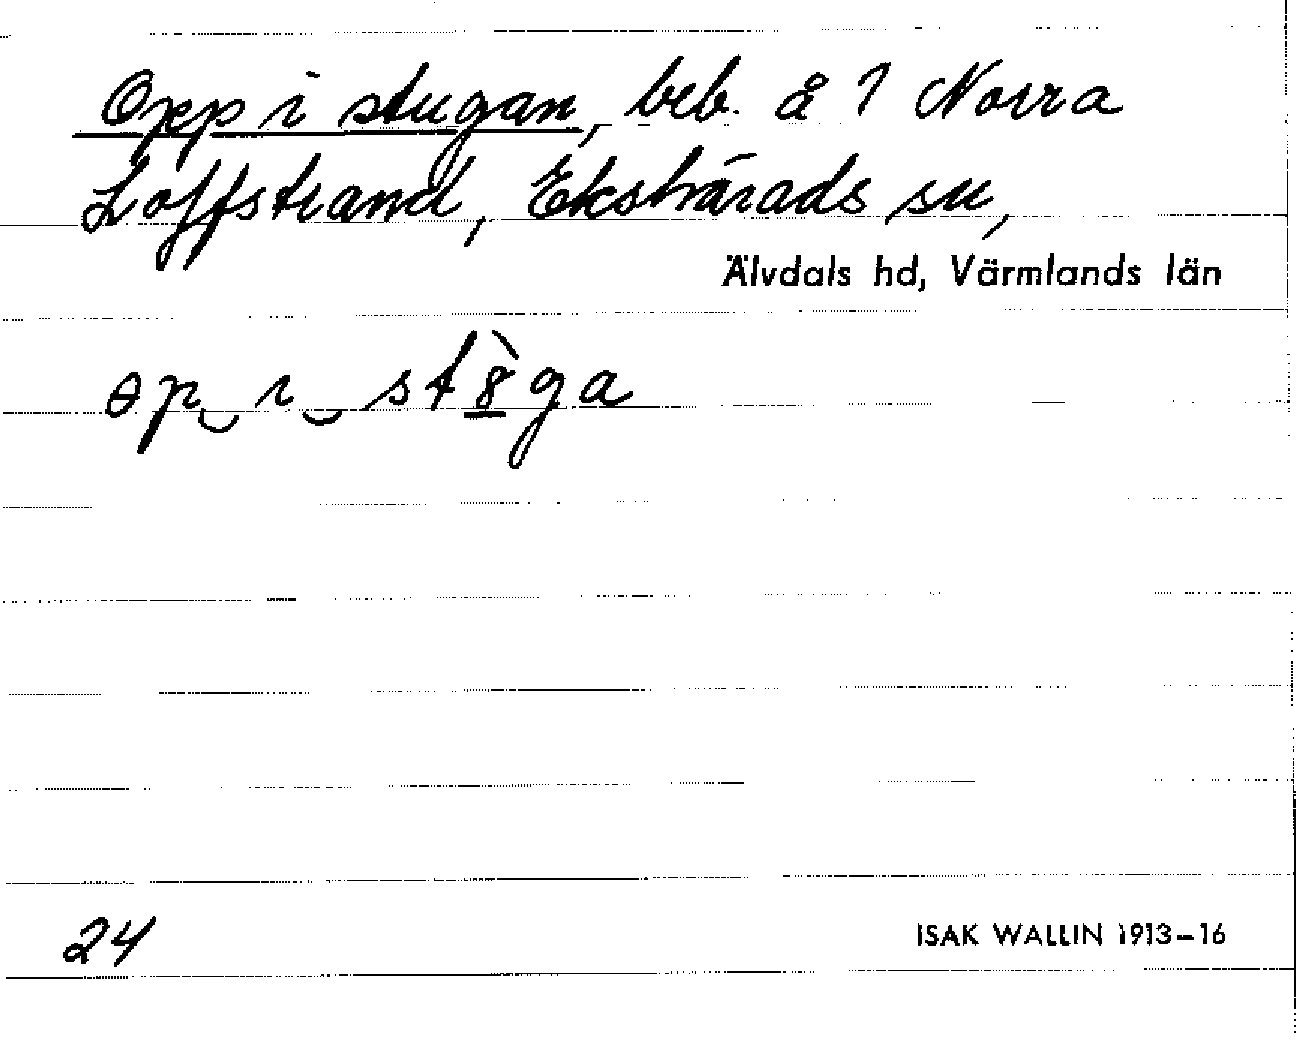 Opp i stugan, beb. å 1 Norra
Loffstrand, Ekshärads sn,
Älvdals hd, Värmlands län
ɵp‿ı‿st8̲̀ga
24
ISAK WALLIN 1913–16